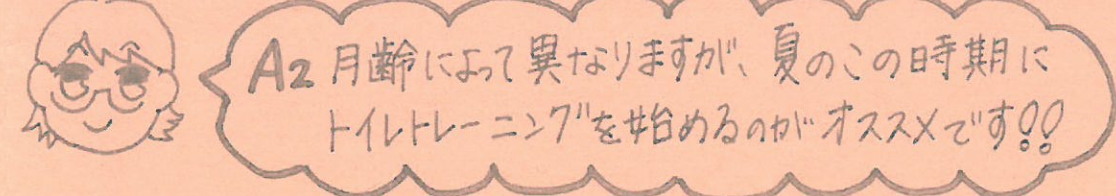 A2 月齢によって異なりますが、夏のこの時期に
トイレトレーニングを始めるのがオススメです!!